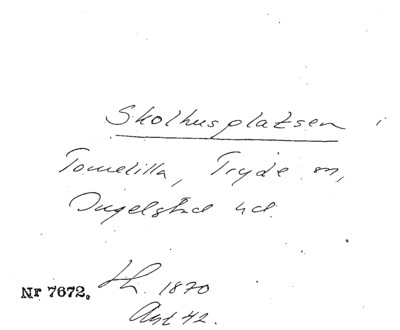 Skolhusplatsen i
Tomelilla, Tryde sn,
Ingelstad hd.
1870
Nr 7672.
42.